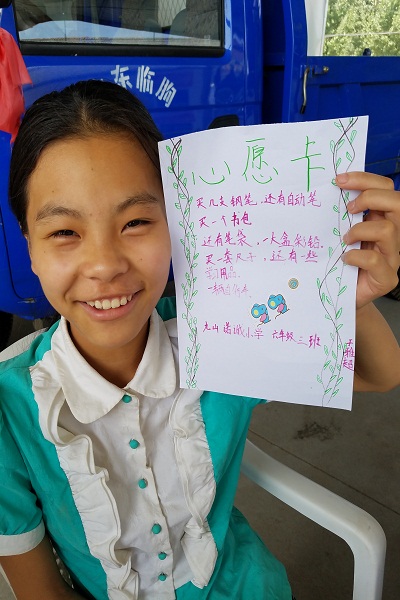 东临朐
心愿卡
买几支钢笔，还有自动笔
买一个书包
还有笔袋，一大盒彩铅，
买一套尺子，还有一些
学习用品。
九山 小学 六年级三班